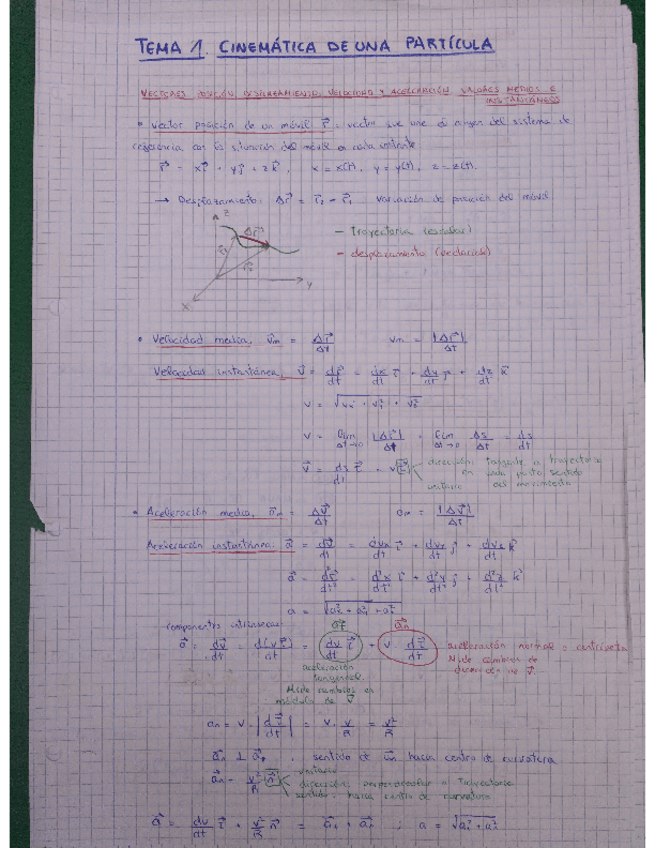 TEMA 1. CINEMÁTICA DE UNA PARTÍCULA
VECTORES POSICIÓN, DESPLAZAMIENTO, VELOCIDAD Y ACELERACIÓN. VALORES MEDIOS E
INSTANTÁNEOS
• Vector posición de un móvil r⃗: vector que une el origen del sistema de
referencia con la situación del móvil a cada instante
r⃗ = x i⃗ + y j⃗ + z k⃗, x = x(t), y = y(t), z = z(t).
→ Desplazamiento: Δr⃗ = r⃗₂ - r⃗₁ variación de posición del móvil
Z
Δr⃗
r⃗₁
r⃗₂
Y
X
- trayectoria (escalar)
- desplazamiento (vectorial)
• Velocidad media, v⃗m = Δr⃗/Δt vm = |Δr⃗|/Δt
Velocidad instantánea, v⃗ = dr⃗/dt = dx/dt i⃗ + dy/dt j⃗ + dz/dt k⃗
v = √(vx² + vy² + vz²)
v = lim Δt→0 |Δr⃗|/Δt = lim Δt→0 Δs/Δt = ds/dt
v⃗ = ds/dt τ⃗ = v τ⃗
dirección: tangente a trayectoria
en cada punto, sentido
del movimiento
unitario
• Aceleración media, a⃗m = Δv⃗/Δt am = |Δv⃗|/Δt
Aceleración instantánea: a⃗ = dv⃗/dt = dvx/dt i⃗ + dvy/dt j⃗ + dvz/dt k⃗
a⃗ = d²r⃗/dt² = d²x/dt² i⃗ + d²y/dt² j⃗ + d²z/dt² k⃗
a = √(ax² + ay² + az²)
componentes intrínsecas
a⃗t a⃗n
a⃗ = dv⃗/dt = d(v τ⃗)/dt = dv/dt τ⃗ + v · dτ⃗/dt
aceleración normal o centrípeta
Mide cambios de
dirección de v⃗.
aceleración
tangencial.
Mide cambios en
módulo de v⃗
an = v · |dτ⃗/dt| = v · v/R = v²/R
a⃗n ⊥ a⃗t, sentido de a⃗n hacia centro de curvatura
a⃗n = v²/R n⃗
unitario
dirección: perpendicular a trayectoria
sentido: hacia centro de curvatura
a⃗ = dv/dt τ⃗ + v²/R n⃗ = a⃗t + a⃗n ; a = √(at² + an²)